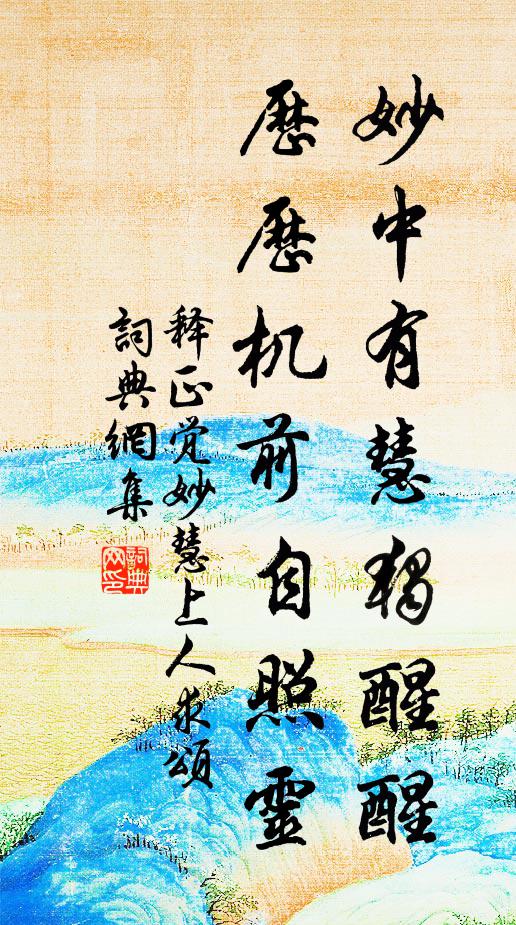 妙中有慧独醒醒
歷歷机前自照靈
释正觉妙慧上人求頌
詞典網集
詞典
网印